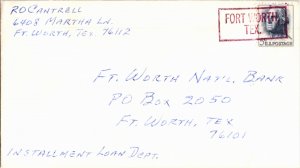 RDCantrell
6408 Martha Ln.
Ft. Worth, Tex. 76112
FORT WORTH
TEX.
U.S. POSTAGE
Ft. Worth Nat'l. Bank
PO Box 2050
Ft. Worth, Tex
76101
Installment Loan Dept.